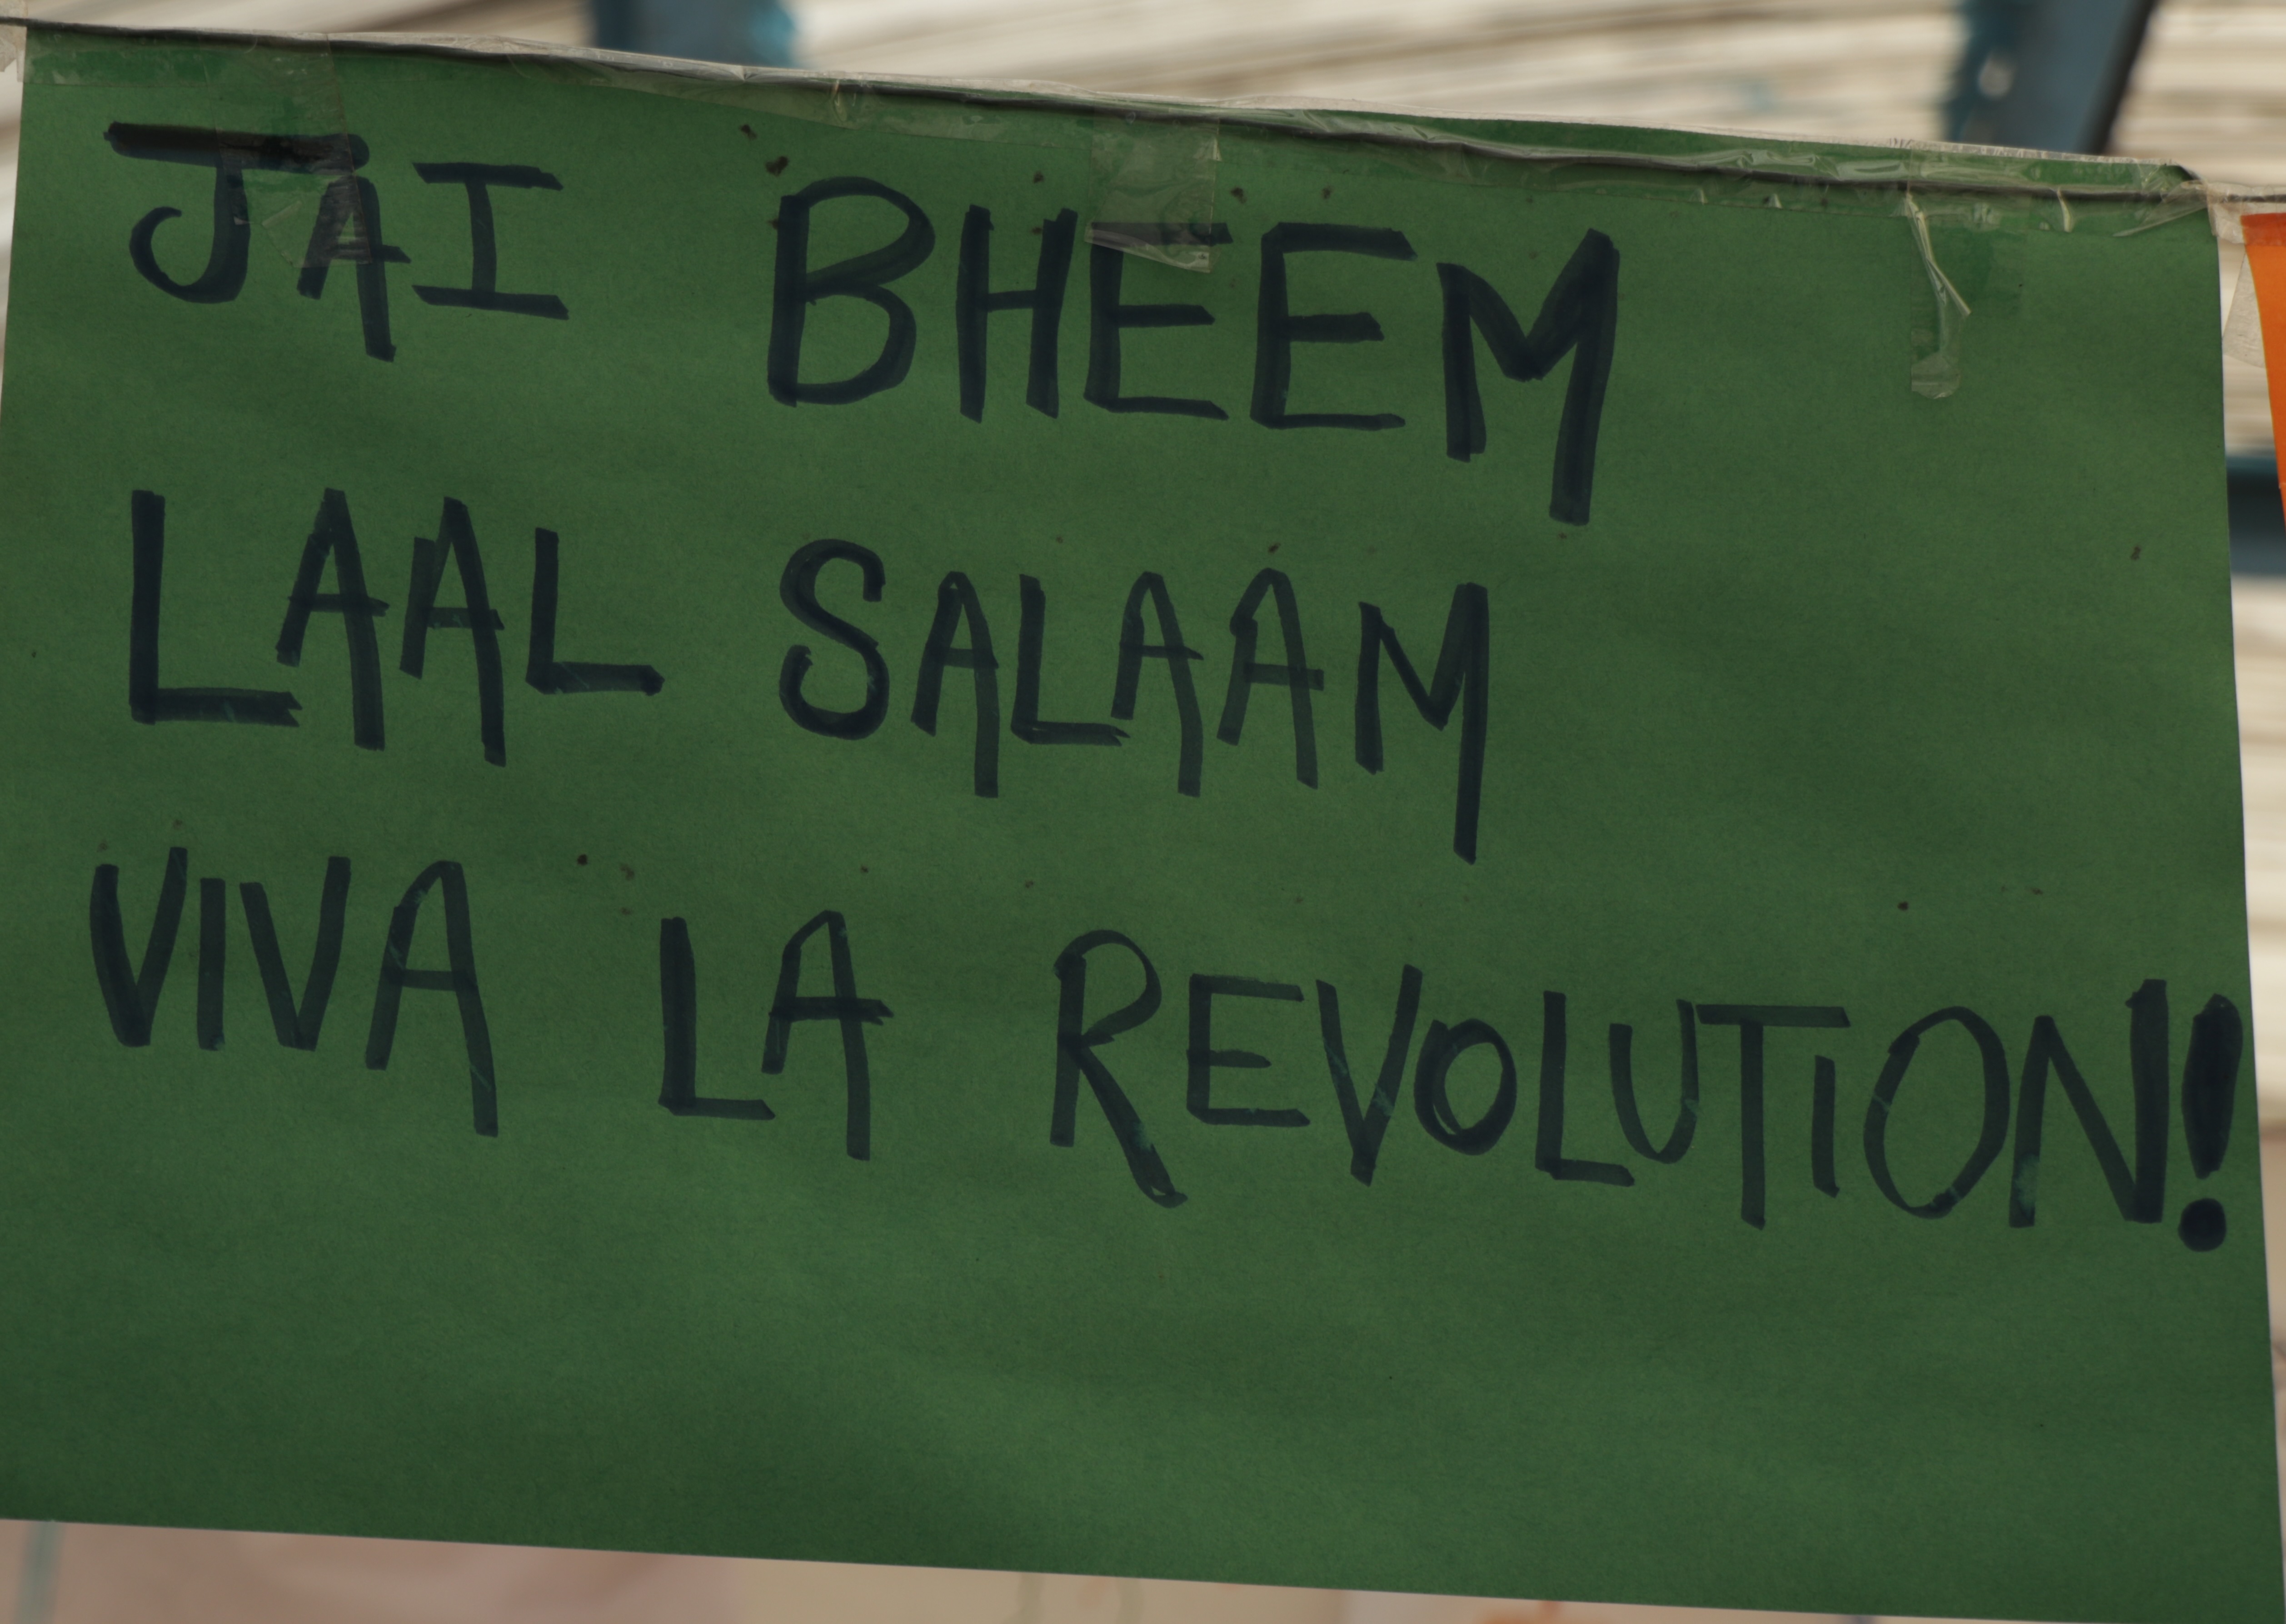 JAI BHEEM
LAAL SALAAM
VIVA LA REVOLUTION!